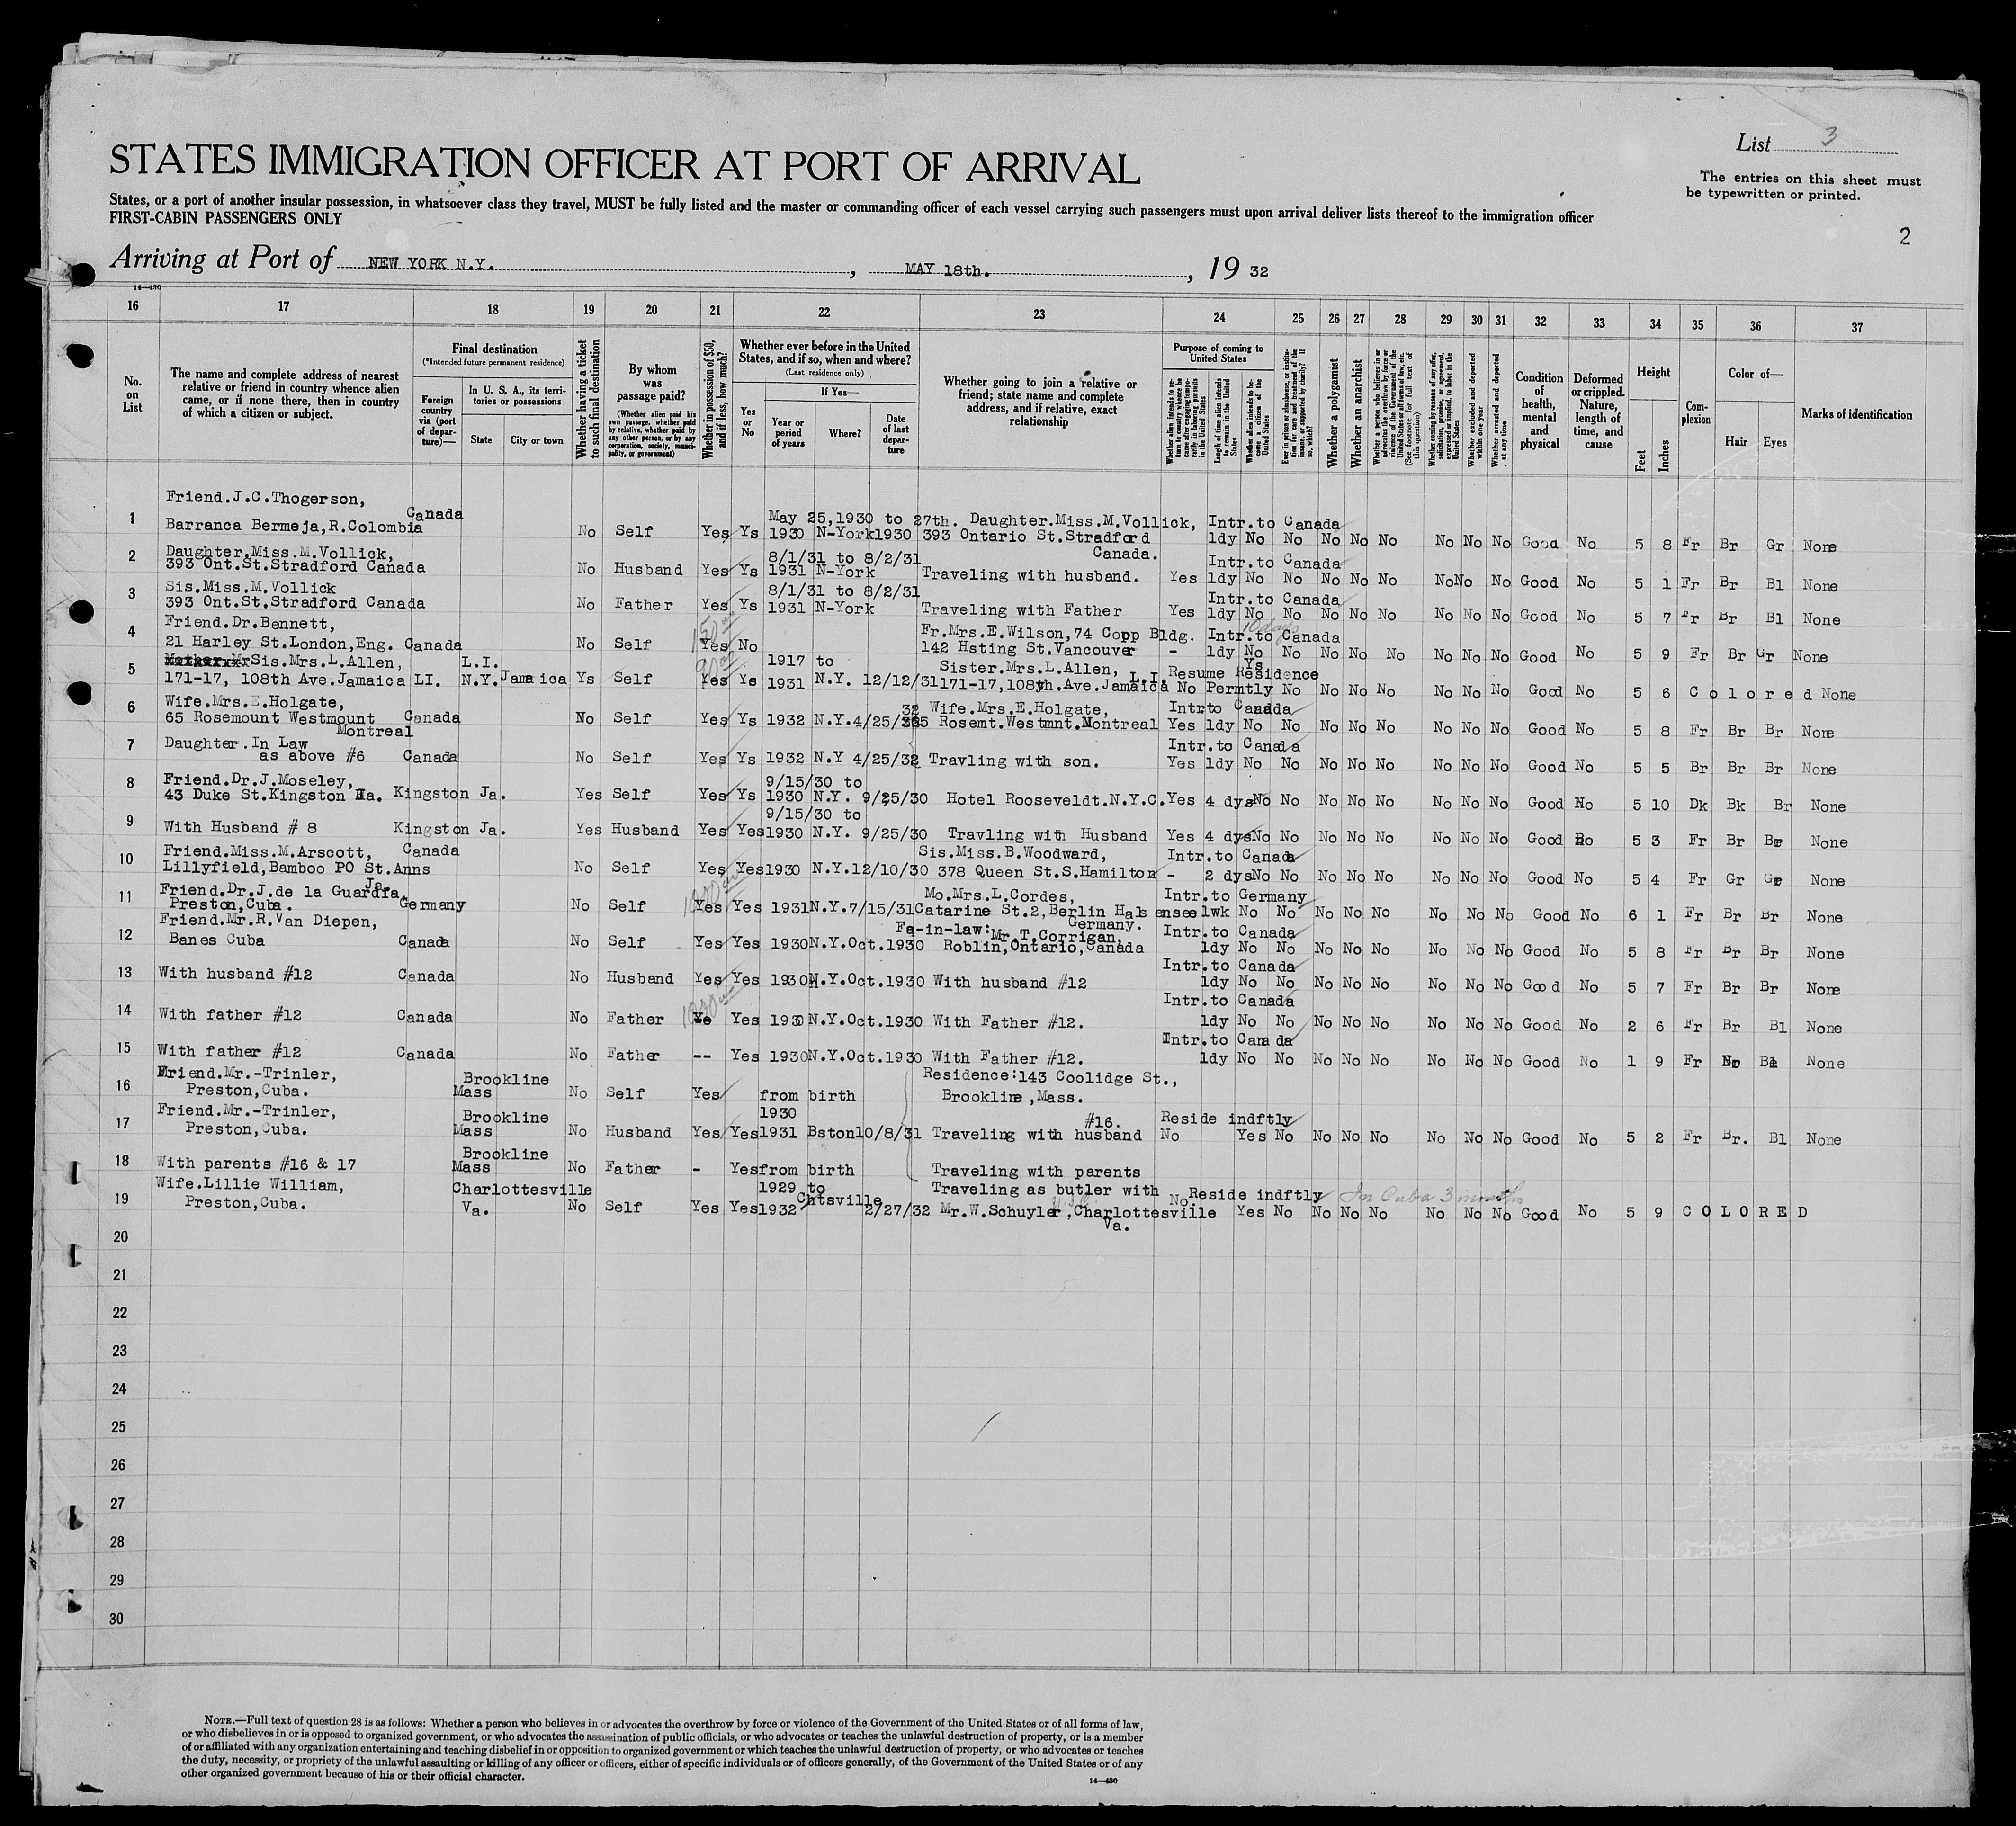 List 3
STATES IMMIGRATION OFFICER AT PORT OF ARRIVAL
The entries on this sheet must
be typewritten or printed.
States, or a port of another insular possession, in whatsoever class they travel, MUST be fully listed and the master or commanding officer of each vessel carrying such passengers must upon arrival deliver lists thereof to the immigration officer
FIRST-CABIN PASSENGERS ONLY
2
Arriving at Port of NEW YORK N.Y. , MAY 18th. , 19 32
14—430
16 17 18 19 20 21 22 23 24 25 26 27 28 29 30 31 32 33 34 35 36 37
No. on List
The name and complete address of nearest relative or friend in country whence alien came, or if none there, then in country of which a citizen or subject.
Final destination
(*Intended future permanent residence)
Foreign country via (port of departure)—
In U. S. A., its territories or possessions
State City or town
Whether having a ticket to such final destination
By whom was passage paid?
(Whether alien paid his own passage, whether paid by relative, whether paid by any other person, or by any corporation, society, municipality, or government)
Whether in possession of $50, and if less, how much?
Whether ever before in the United States, and if so, when and where?
(Last residence only)
Yes or No
If Yes—
Year or period of years Where? Date of last departure
Whether going to join a relative or friend; state name and complete address, and if relative, exact relationship
Purpose of coming to United States
Length of time alien intends to remain in the United States
Whether alien intends to become a citizen of the United States
Whether a polygamist
Whether an anarchist
(See footnote for full text of this question)
Whether excluded and deported within one year
Whether arrested and deported at any time
Condition of health, mental and physical
Deformed or crippled. Nature, length of time, and cause
Height
Feet Inches
Complexion
Color of—
Hair Eyes
Marks of identification
Friend.J.C.Thogerson, Canada May 25,1930 to 27th. Daughter.Miss.M.Vollick, Intr.to Canada
1 Barranca Bermeja,R.Colombia No Self Yes Ys 1930 N-York 1930 393 Ontario St.Stradford Canada. 1dy No No No No No No No No Good No 5 8 Fr Br Gr None
Daughter.Miss.M.Vollick, 8/1/31 to 8/2/31 Intr.to Canada
2 393 Ont.St.Stradford Canada No Husband Yes Ys 1931 N-York Traveling with husband. Yes 1dy No No No No No No No No Good No 5 1 Fr Br Bl None
Sis.Miss.M.Vollick 8/1/31 to 8/2/31 Intr.to Canada
3 393 Ont.St.Stradford Canada No Father Yes Ys 1931 N-York Traveling with Father Yes 1dy No No No No No No No No Good No 5 7 Fr Br Bl None
Friend.Dr.Bennett, 150 Fr.Mrs.E.Wilson,74 Copp Bldg. Intr.to Canada 10 days
4 21 Harley St.London,Eng. Canada No Self Yes No 142 Hsting St.Vancouver - 1dy No No No No No No No No Good No 5 9 Fr Br Gr None
Sis.Mrs.L.Allen, L.I. 90 1917 to Sister.Mrs.L.Allen, L.I. Resume Residence Ys
5 171-17, 108th Ave.Jamaica LI. N.Y. Jamaica Ys Self Yes Ys 1931 N.Y. 12/12/31 171-17,108th.Ave.Jamaica No Permtly No No No No No No No Good No 5 6 Colored None
Wife.Mrs.E.Holgate, 32 Wife.Mrs.E.Holgate, Intr.to Canada
6 65 Rosemount Westmount Montreal Canada No Self Yes Ys 1932 N.Y.4/25/ 65 Rosemt.Westmnt.Montreal Yes 1dy No No No No No No No No Good No 5 8 Fr Br Br None
Daughter.In Law Intr.to Canada
7 as above #6 Canada No Self Yes Ys 1932 N.Y 4/25/32 Travling with son. Yes 1dy No No No No No No No No Good No 5 5 Br Br Br None
Friend.Dr.J.Moseley, 9/15/30 to
8 43 Duke St.Kingston Ja. Kingston Ja. Yes Self Yes Ys 1930 N.Y. 9/25/30 Hotel Rooseveldt.N.Y.C. Yes 4 dys No No No No No No No No Good No 5 10 Dk Bk Br None
9/15/30 to
9 With Husband # 8 Kingston Ja. Yes Husband Yes Yes 1930 N.Y. 9/25/30 Travling with Husband Yes 4 dys No No No No No No No No Good No 5 3 Fr Br Br None
Friend.Miss.M.Arscott, Canada Sis.Miss.B.Woodward, Intr.to Canada
10 Lillyfield,Bamboo PO St.Anns Ja. No Self Yes Yes 1930 N.Y.12/10/30 378 Queen St.S.Hamilton - 2 dys No No No No No No No No Good No 5 4 Fr Gr Gr None
Friend.Dr.J.de la Guardia, Mo.Mrs.L.Cordes, Intr.to Germany
11 Preston,Cuba. Germany No Self Yes Yes 1931 N.Y.7/15/31 Catarine St.2,Berlin Halensee Germany. 1wk No No No No No No No No Good No 6 1 Fr Br Br None
Friend.Mr.R.Van Diepen, Fa-in-law:Mr.T.Corrigan, Intr.to Canada
12 Banes Cuba Canada No Self Yes Yes 1930 N.Y.Oct.1930 Roblin,Ontario,Canada 1dy No No No No No No No No Good No 5 8 Fr Br Br None
Intr.to Canada
13 With husband #12 Canada No Husband Yes Yes 1930 N.Y.Oct.1930 With husband #12 1dy No No No No No No No No Good No 5 7 Fr Br Br None
Intr.to Canada
14 With father #12 Canada No Father Yes 1930 N.Y.Oct.1930 With Father #12. 1dy No No No No No No No No Good No 2 6 Fr Br Bl None
Intr.to Canada
15 With father #12 Canada No Father -- Yes 1930 N.Y.Oct.1930 With Father #12. 1dy No No No No No No No No Good No 1 9 Fr Bl None
Friend.Mr.-Trinler, Brookline Residence:143 Coolidge St.,
16 Preston,Cuba. Mass No Self Yes from birth Brookline,Mass.
Friend.Mr.-Trinler, Brookline 1930 #16. Reside indftly
17 Preston,Cuba. Mass No Husband Yes Yes 1931 Bston 10/8/31 Traveling with husband No Yes No No No No No No No Good No 5 2 Fr Br. Bl None
Brookline
18 With parents #16 & 17 Mass No Father - Yes from birth Traveling with parents
Wife.Lillie William, Charlottesville 1929 to Chtsville Traveling as butler with No Reside indftly In Cuba 3 months
19 Preston,Cuba. Va. No Self Yes Yes 1932 2/27/32 Mr.W.Schuyler,Charlottesville Va. Yes No No No No No No No Good No 5 9 COLORED
20
21
22
23
24
25
26
27
28
29
30
NOTE.—Full text of question 28 is as follows: Whether a person who believes in or advocates the overthrow by force or violence of the Government of the United States or of all forms of law,
or who disbelieves in or is opposed to organized government, or who advocates the assassination of public officials, or who advocates or teaches the unlawful destruction of property, or is a member
of or affiliated with any organization entertaining and teaching disbelief in or opposition to organized government or which teaches the unlawful destruction of property, or who advocates or teaches
the duty, necessity, or propriety of the unlawful assaulting or killing of any officer or officers, either of specific individuals or of officers generally, of the Government of the United States or of any
other organized government because of his or their official character.
14—430